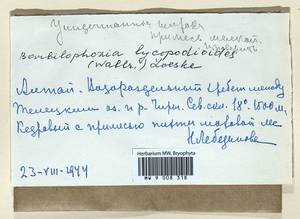 Barbilophozia lycopodioides
(Wallr.) Loeske
Алтай. Водораздельный хребет между
Телецким оз. и р. Сев. 18° 1500 м,
Кедровый с примесью пихты моховой лес
Н Лебединова
23-VIII-1944
Herbarium MW, Bryophyta
MW 9 008 318